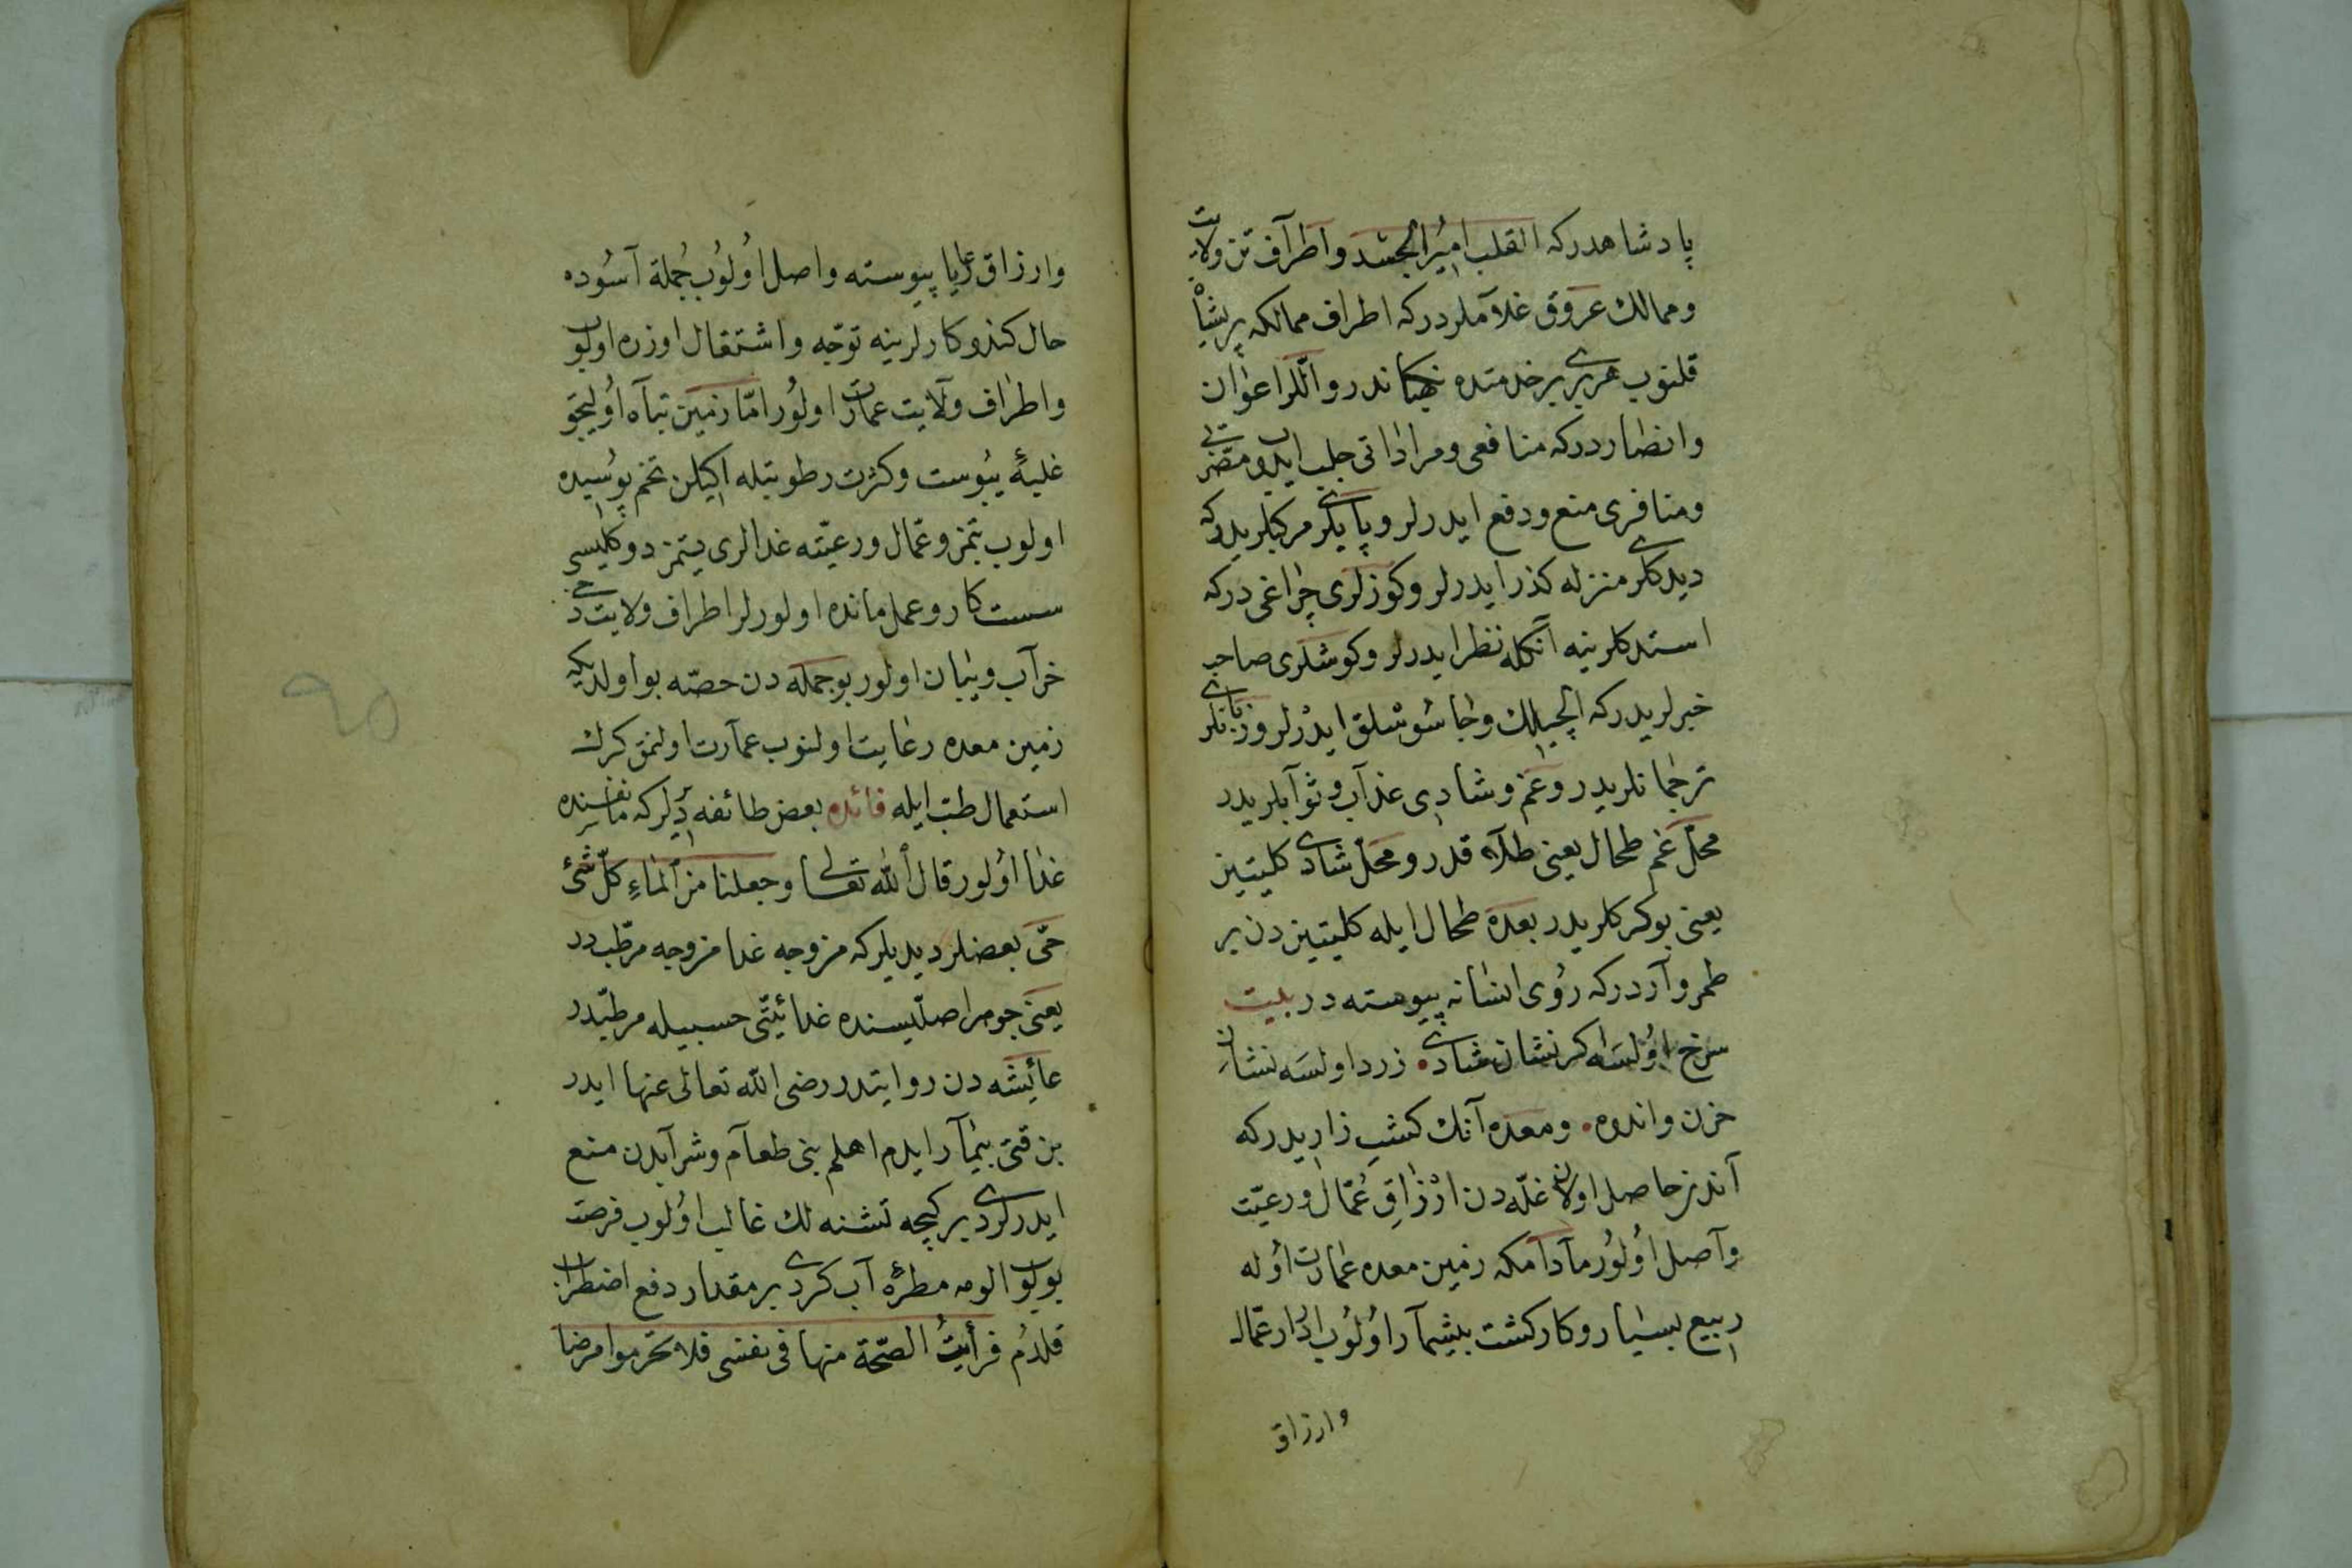 پادشاهدركه القلب امیرُ الجسَد واطرآف تن ولایت
وممالك عروق غلآملردركه اطراف ممالكه پریشان
قلنوب هربری برخدمتده در واللر اعوان
وانصاردركه منافعی ومراداتی جلب ایدوب مضرتی
ومنافری منع ودفع ایدرلر وپایلری مركبلریدركه
دیدكلری منزله كذر ایدرلر وكوزلری چراغی دركه
استدكلرینه آنكله نظر ایدرلر وكوشلری صاحب
خبرلریدركه ایلچیلك وجاسوسلق ایدرلر وزبانلری
ترجمانلریدر وغم وشادی عذآب وثوآبلریدر
محلّ غم طحال یعنی طلاق قدر ومحلّ شادی كلیتین
یعنی بوكركلریدر بعده طحال ایله كلیتین دن بر
طمر وآردركه رؤی انسانه پیوسته در بیت
سرخ اوُلسَه كر نشان شادی • زرد اولسَه نشان
حزن واندوه • ومعده آنك كشت زاریدركه
آندن حاصل اولان غلّه دن ارْزاقِ عُمّال ورعیّت
وآصل اوُلوُر مآدامكه زمین معده عمارت اوُله
ربیع بسیار وكار كشت بیشمآر اوُلوُب ادرار عمّال
وارزاق
وارزاق رعایا پیوسته واصل اوُلوُب جُملة آسوُده
حال كندو كارلرینه توجّه واشتغال اوزره اولوب
واطراف ولآیت عمارت اولوُر امّا زمین تبآه اوُلیجق
غلبهٔ یبوُست وكثرت رطوبتله اكیلن تخم پوُسیده
اولوب بتمز وعمّال ورعیّته غدالری یتمز دوكلیسی
سست كار وعمل مانده اولورلر اطراف ولایت دخی
خرآب ویبان اولور بوجمله دن حصّه بو اولدیكه
زمین معده رعایت اولنوب عمآرت اولنمق كرك
استعمال طبّ ایله فائده بعض طائفه دیرلركه ماء نفسنده
غذا اوُلور قال اللّه تعالی وجعلنا من الماءِ كلّ شئ
حیّ بعضلر دیدیلركه مزوجه غدا مزوجه مرطّبدر
یعنی جوهر اصلیسنده غدائیّتی حسبیله مرطّبدر
عائیشه دن روایتدر رضی اللّه تعالی عنها ایدر
بن قتی بیمآر ایدم اهلم بنی طعآم وشرآبدن منع
ایدرلردی بر كیجه تشنه لك غالب اوُلوب فرصت
بولوب الومه مطرهٔ آب كردی بر مقدار دفع اضطراب
قلدم فرأیتُ الصّحّة منها فی نفسی فلا تحرموا مرضا